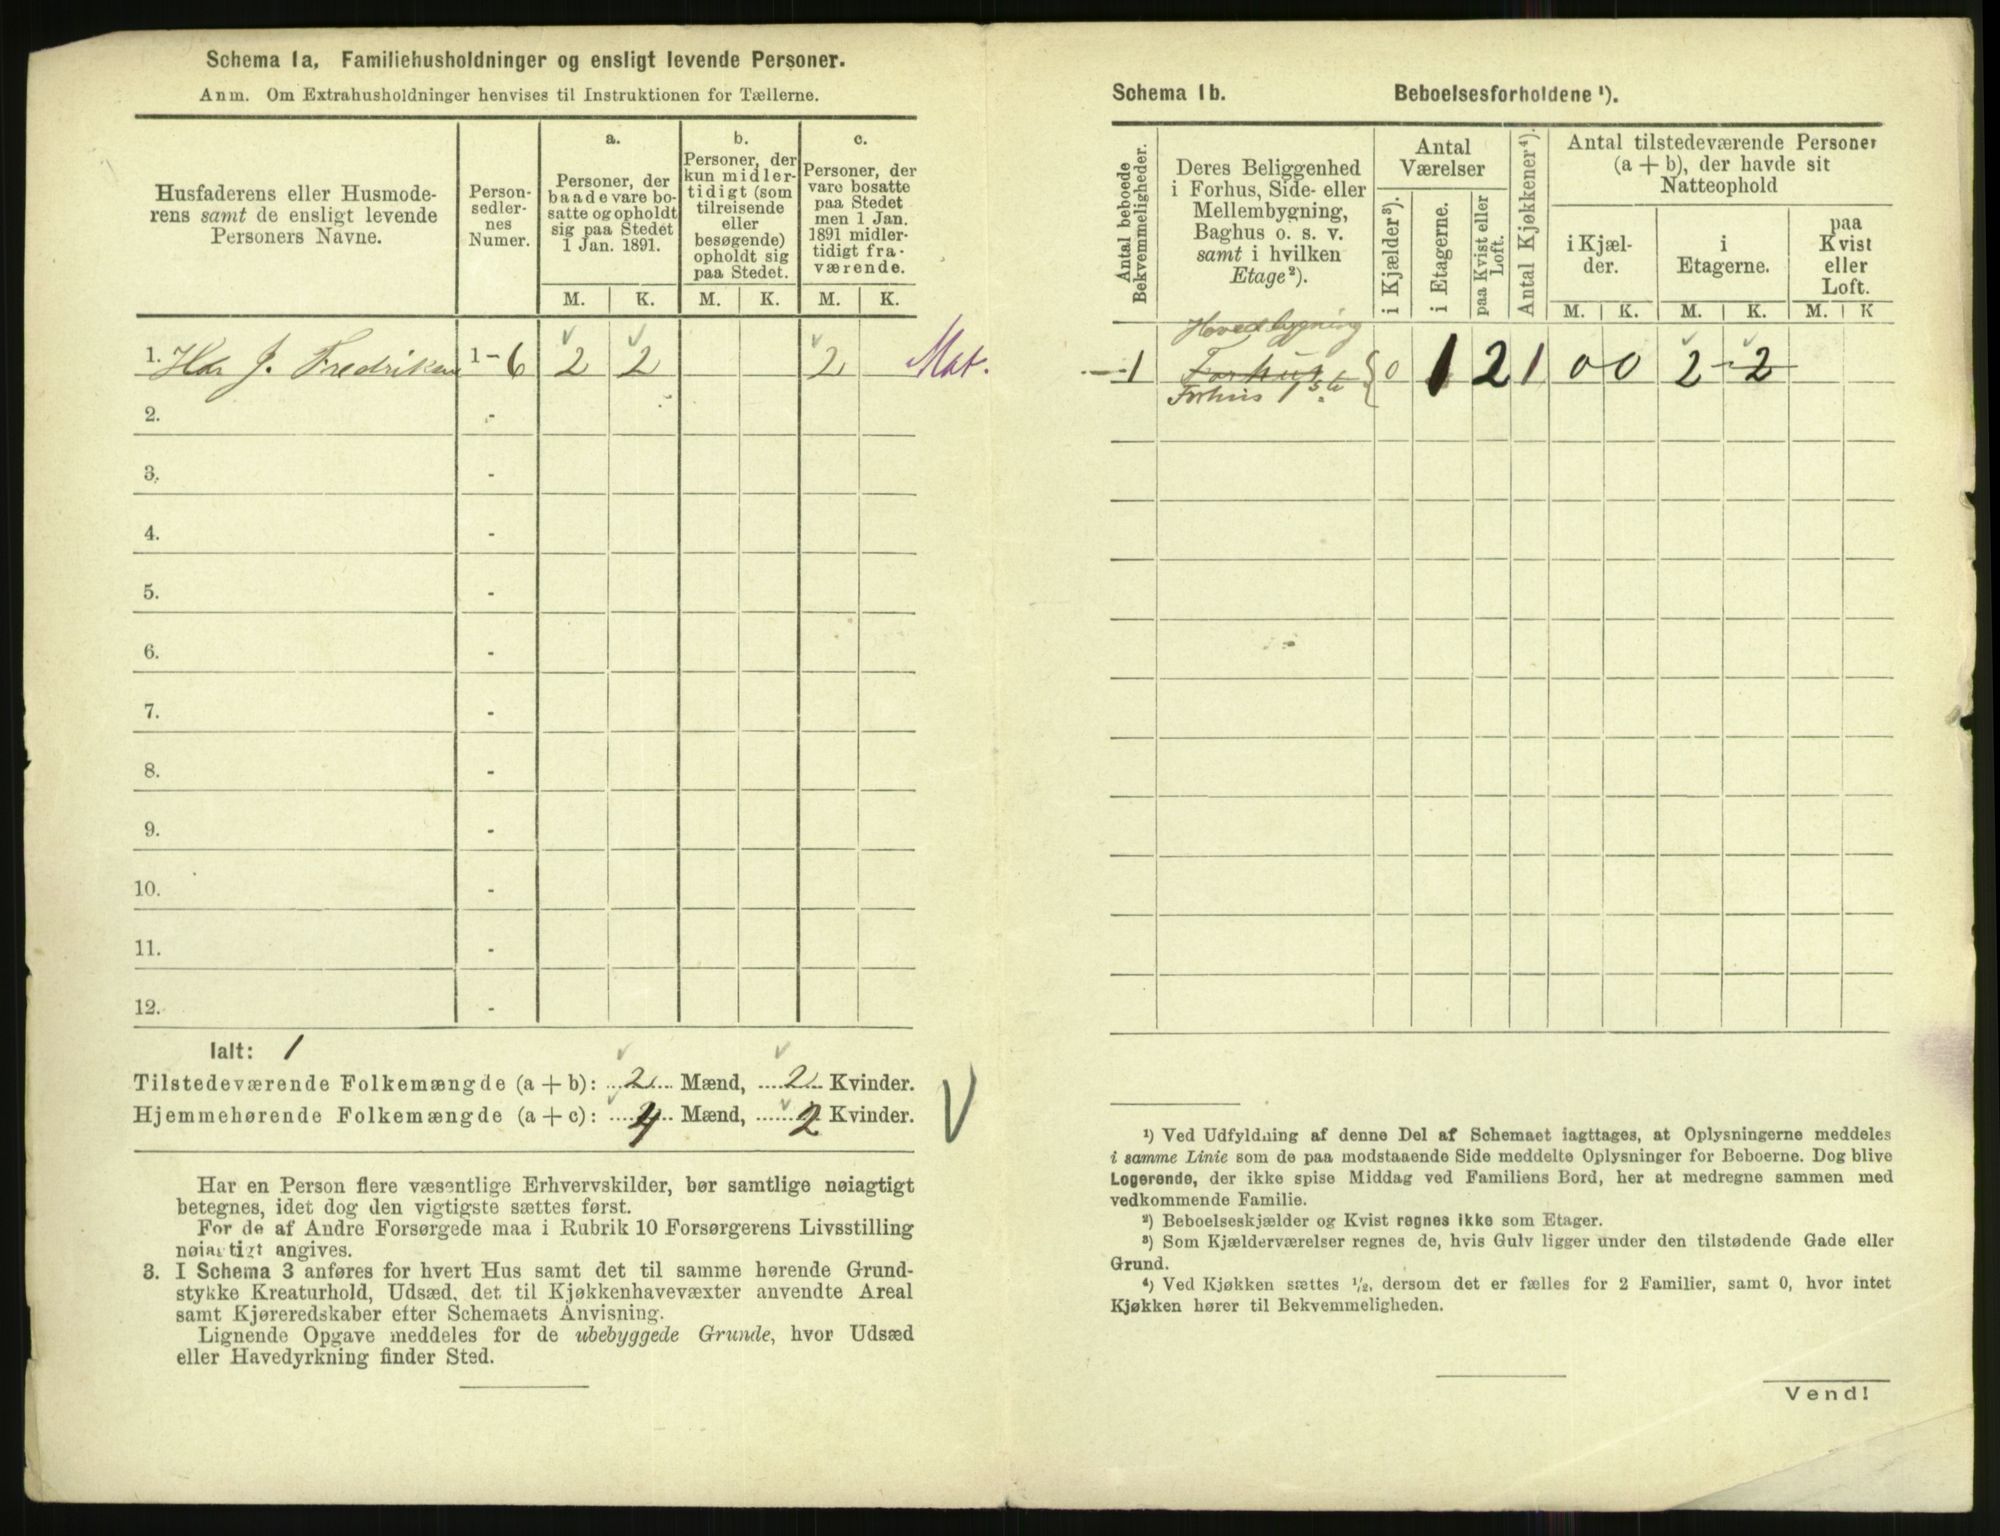 Schema 1a. Familiehusholdninger og ensligt levende Personer.
Anm. Om Extrahusholdninger henvises til Instruktionen for Tællerne.
Husfaderens eller Husmode-
rens samt de ensligt levende
Personers Navne.
Person-
sedler-
nes
Numer.
a.
Personer, der
baade vare bo-
satte og opholdt
sig paa Stedet
1 Jan. 1891.
b.
Personer, der
kun midler-
tidigt (som
tilreisende
eller
besøgende)
opholdt sig
paa Stedet.
c.
Personer, der
vare bosatte
paa Stedet
men 1 Jan.
1891 midler-
tidigt fra-
værende.
M. K. M. K. M. K.
1. J. Fredriksen 1-6 2 2 2 Mat.
2. -
3. -
4. -
5. -
6. -
7. -
8. -
9. -
10. -
11. -
12. -
Ialt: 1
Tilstedeværende Folkemængde (a + b): 2 Mænd, 2 Kvinder.
Hjemmehørende Folkemængde (a + c): 4 Mænd, 2 Kvinder.
Har en Person flere væsentlige Erhvervskilder, bør samtlige nøiagtigt
betegnes, idet dog den vigtigste sættes først.
For de af Andre Forsørgede maa i Rubrik 10 Forsørgerens Livsstilling
nøiagtigt angives.
3. I Schema 3 anføres for hvert Hus samt det til samme hørende Grund-
stykke Kreaturhold, Udsæd, det til Kjøkkenhavevæxter anvendte Areal
samt Kjøreredskaber efter Schemaets Anvisning.
Lignende Opgave meddeles for de ubebyggede Grunde, hvor Udsæd
eller Havedyrkning finder Sted.
Schema 1b. Beboelsesforholdene ¹).
Antal beboede
Bekvemmeligheder.
Deres Beliggenhed
i Forhus, Side- eller
Mellembygning,
Baghus o. s. v.
samt i hvilken
Etage²).
Antal
Værelser
i Kjælder³).
i Etagerne.
paa Kvist eller
Loft.
Antal Kjøkkener⁴).
Antal tilstedeværende Personer
(a + b), der havde sit
Natteophold
i Kjæl-
der.
i
Etagerne.
paa
Kvist
eller
Loft.
M. K. M. K. M. K
Hovedbygning
1 Forhus 0 1 2 1 0 0 2 - 2
Forhus 1 ste
¹) Ved Udfyldning af denne Del af Schemaet iagttages, at Oplysningerne meddeles
i samme Linie som de paa modstaaende Side meddelte Oplysninger for Beboerne. Dog blive
Logerende, der ikke spise Middag ved Familiens Bord, her at medregne sammen med
vedkommende Familie.
²) Beboelseskjælder og Kvist regnes ikke som Etager.
³) Som Kjælderværelser regnes de, hvis Gulv ligger under den tilstødende Gade eller
Grund.
⁴) Ved Kjøkken sættes ½, dersom det er fælles for 2 Familier, samt 0, hvor intet
Kjøkken hører til Bekvemmeligheden.
Vend!